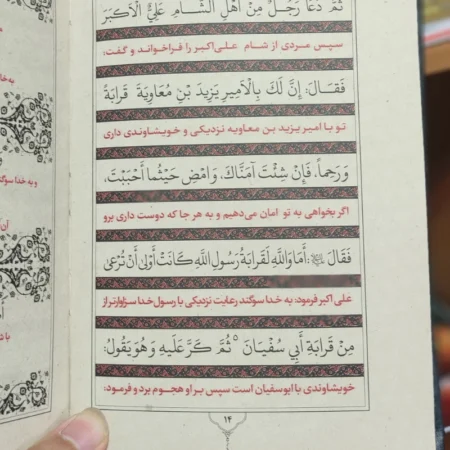 ثُمَّ دَعَا رَجُلٌ مِنْ أَهْلِ الشَّامِ عَلِيَّ الْأَكْبَرَ
سپس مردی از شام علی‌اکبر را فراخواند و گفت:
فَقَالَ: إِنَّ لَكَ بِالْأَمِيرِ يَزِيدَ بْنِ مُعَاوِيَةَ قَرَابَةً
تو با امیر یزید بن معاویه نزدیکی و خویشاوندی داری
وَ رَحِماً، فَإِنْ شِئْتَ آمَنَّاكَ، وَ امْضِ حَيْثُما أَحْبَبْتَ،
اگر بخواهی به تو امان می‌دهیم و به هر جا که دوست داری برو
فَقَالَ: أَمَا وَاللَّهِ لَقَرَابَةُ رَسُولِ اللَّهِ كَانَتْ أَوْلَى أَنْ تُرْعَىٰ
علی اکبر فرمود: به خدا سوگند رعایت نزدیکی با رسول خدا سزاوارتر از
مِنْ قَرَابَةِ أَبِي سُفْيَانَ ثُمَّ كَرَّ عَلَيْهِ وَ هُوَ يَقُولُ:
خویشاوندی با ابوسفیان است سپس بر او هجوم برد و فرمود:
۱۴
به خدا سوگند